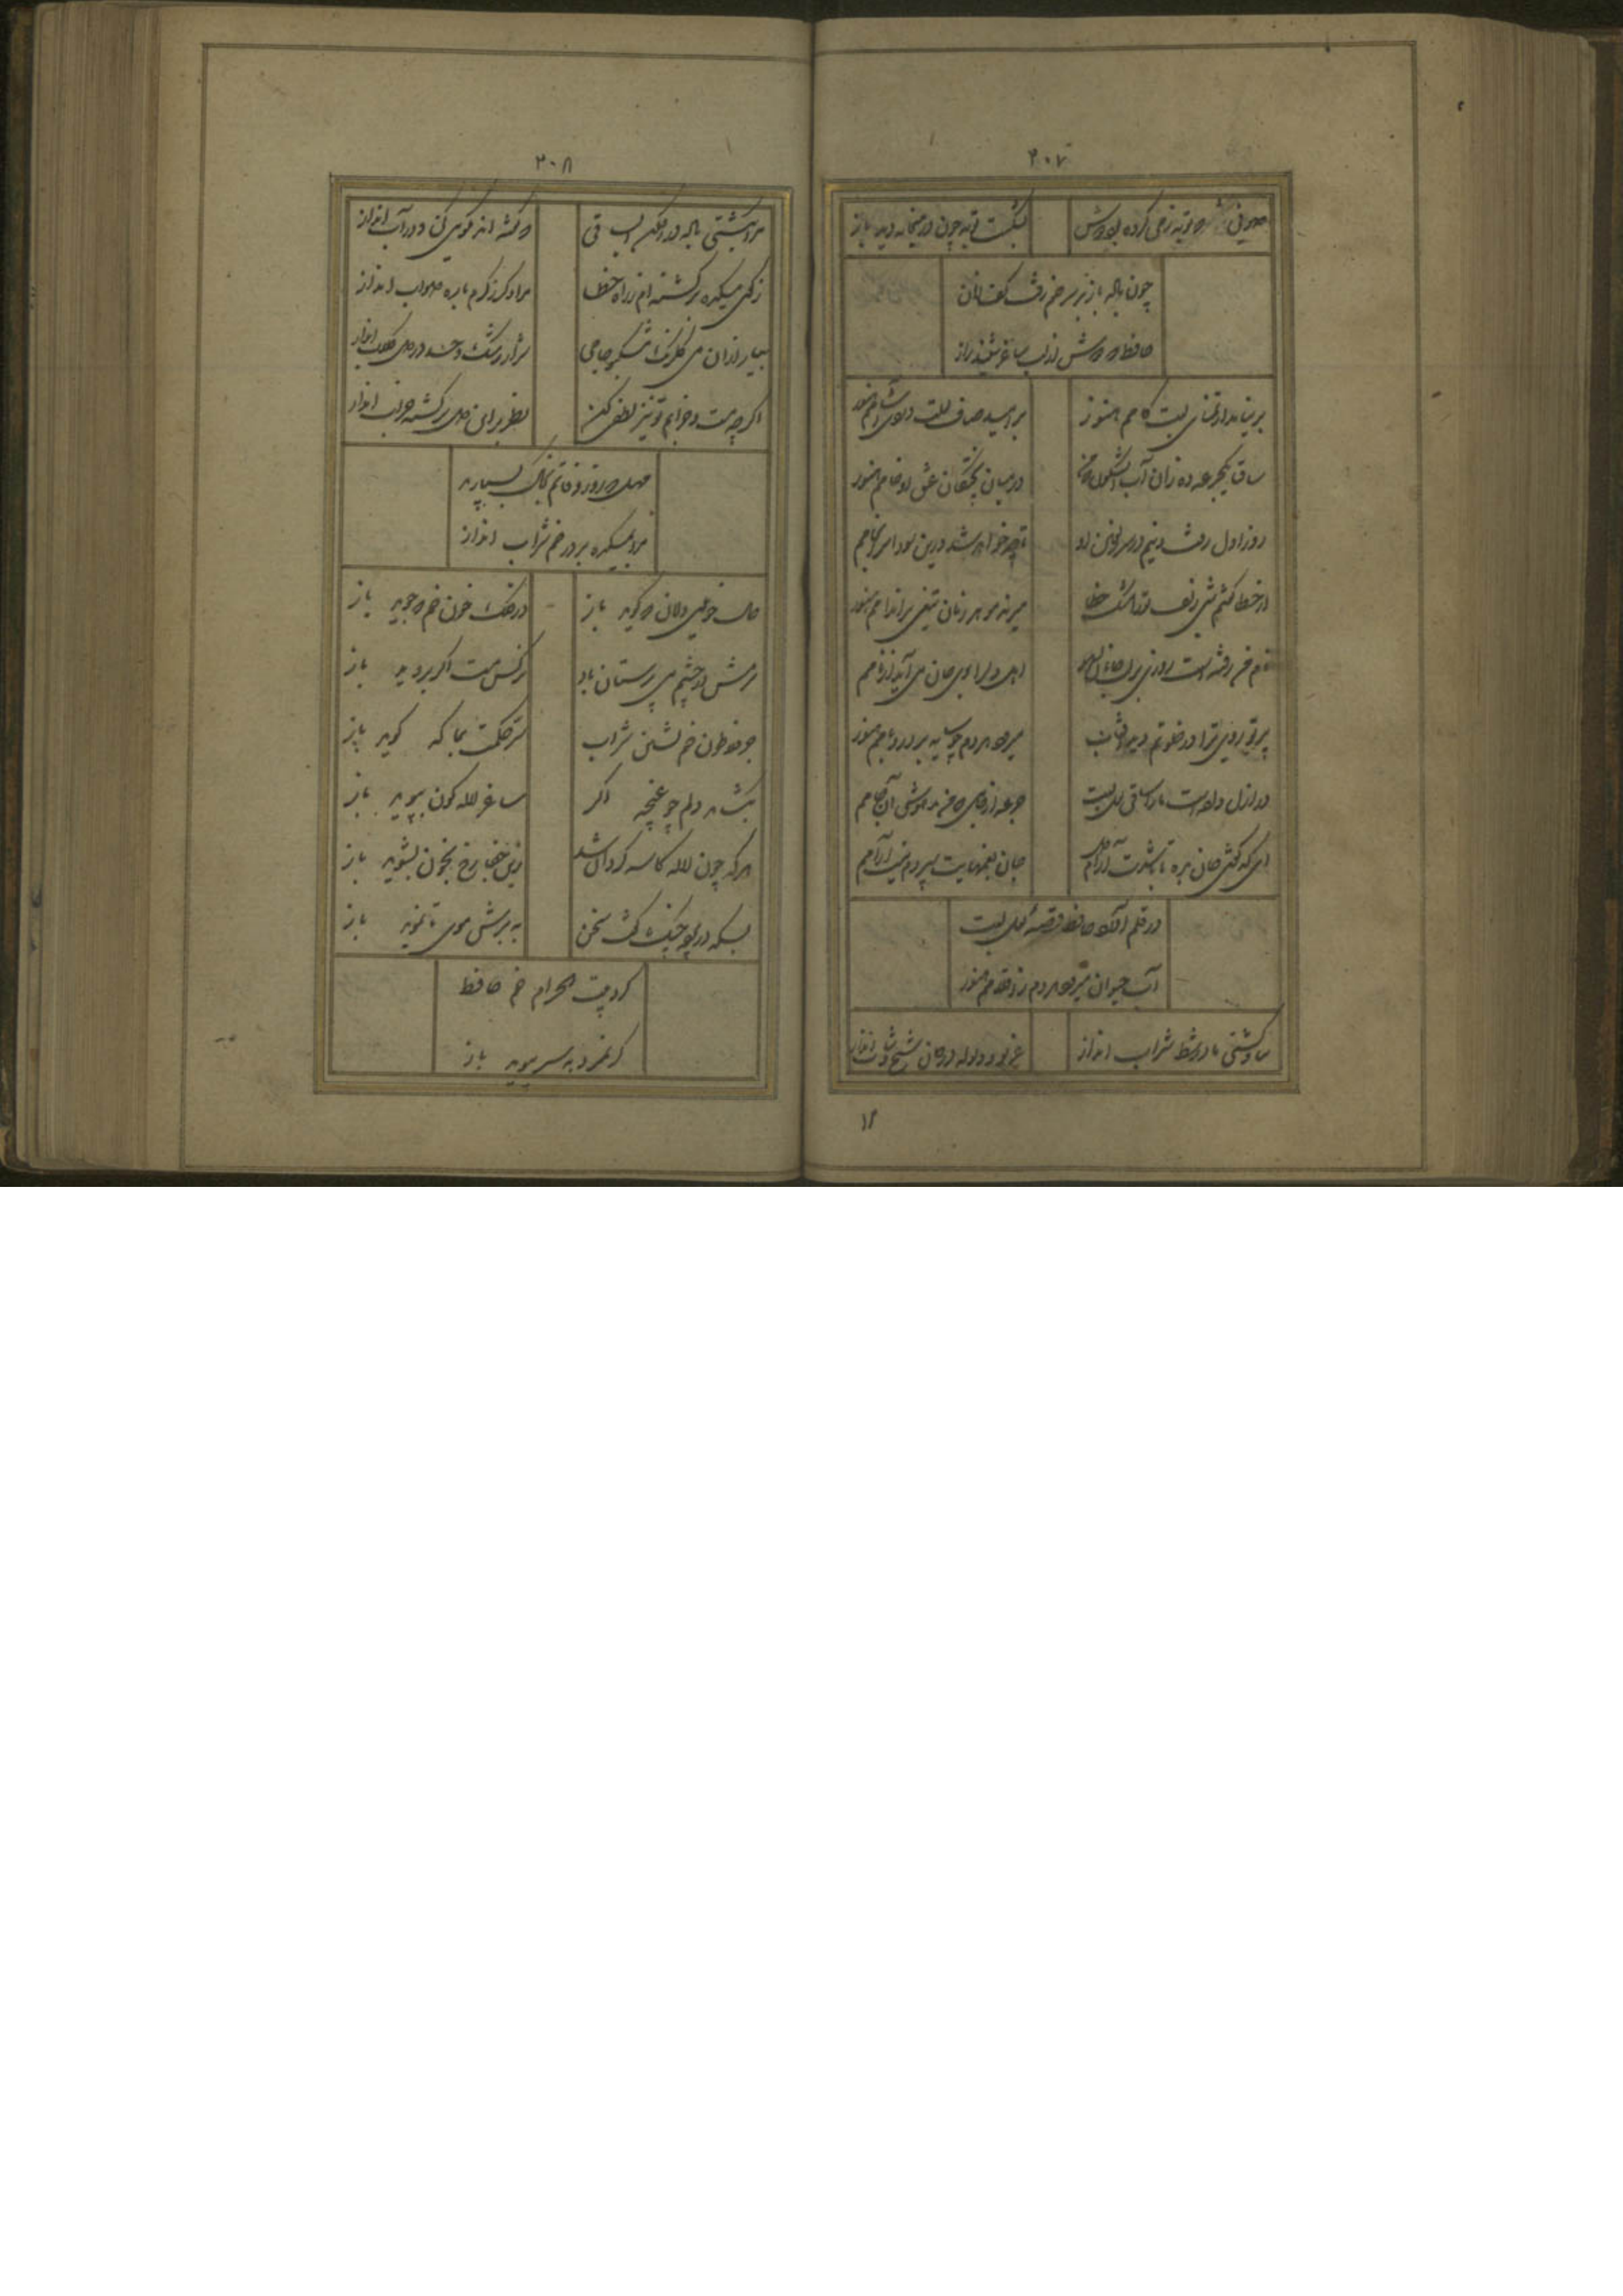 ۲۰۷
صوفی که توبه ز می کرده بود دوش
بشکست توبه چون در میخانه دید باز
چون باده باز بر سر خم رفت کف زنان
حافظ که دوش از لب ساغر شنید راز
بر نیامد از تمنای لبت کامم هنوز
بر امید جام لعلت دردی آشامم هنوز
ساقیا یکجرعه ده زان آب آتشگون که من
در میان پختکان عشق او خامم هنوز
روز اول رفت دینم در سر زلفین او
تا چه خواهد شد درین سودا سرانجامم
از خطا گفتم شبی زلف ترا مشک ختا
میزند هر دم زمان تیغی بر اندامم هنوز
نام من رفته است روزی بر لب جانان بسهو
اهل دل را بوی جان می آید از نامم
پرتو روی ترا در خلوتم دید آفتاب
میرود هر دم چو سایه بر در و بامم هنوز
در ازل داده است ما را ساقی لعل لبت
جرعه از جامی که من مدهوش آن جامم
ای که گفتی جان بده تا باشدت آرام دل
جان بغمهایت سپردم نیست آرامم
در قلم آورد حافظ قصهٔ لعل لبت
آب حیوان میرود هر دم ز اقلامم هنوز
بیا و کشتی ما در شط شراب انداز
غریو و ولوله در جان شیخ و شاب انداز
۲۰۸
مرا بکشتی باده در افکن ای ساقی
که گفته اند نکویی کن و در آب انداز
ز کوی میکده برگشته ام ز راه خطا
مرا دگر ز کرم با ره صواب انداز
بیار ازان می گلرنگ مشکبو جامی
شرار رشک و حسد در دل گلاب انداز
اگرچه مست و خرابم تو نیز لطفی کن
نظر برین دل سرگشته خراب انداز
مهل که روز وفاتم بخاک بسپارند
مرا بمیکده بر در خم شراب انداز
حال خونین دلان که گوید باز
در فلک خون خم که جوید باز
شرمش از چشم می پرستان باد
نرگس مست اگر بروید باز
جز فلاطون خم نشین شراب
سر حکمت بما که گوید باز
نگشاید دلم چو غنچه اگر
ساغر لاله گون نبوید باز
هر که چون لاله کاسه گردان شد
زین جفا رخ بخون بشوید باز
بسکه در پرده چنگ گفت سخن
ببرش موی تا نموید باز
گرد بیت الحرام خم حافظ
گر نمیرد بسر بپوید باز